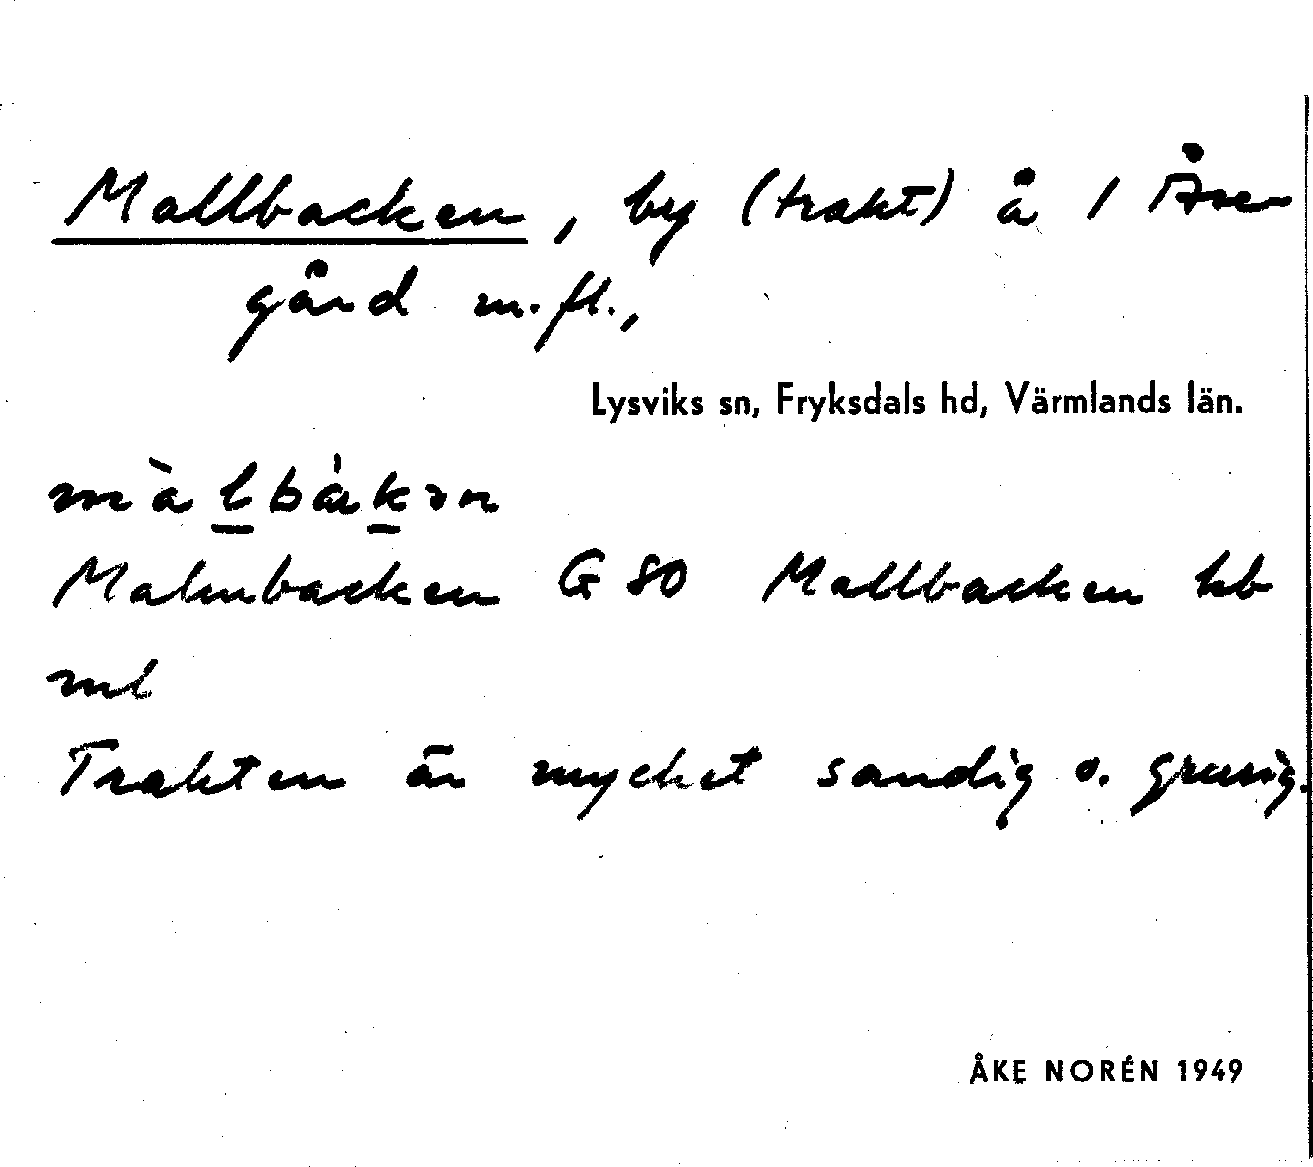 Mallbacken, by (trakt) å 1 Åse-
gård m.fl.,
Lysviks sn, Fryksdals hd, Värmlands län.
màlbákən
Malmbacken G 80 Mallbacken kb
ml
Trakten är mycket sandig o. grusig.
ÅKE NORÉN 1949